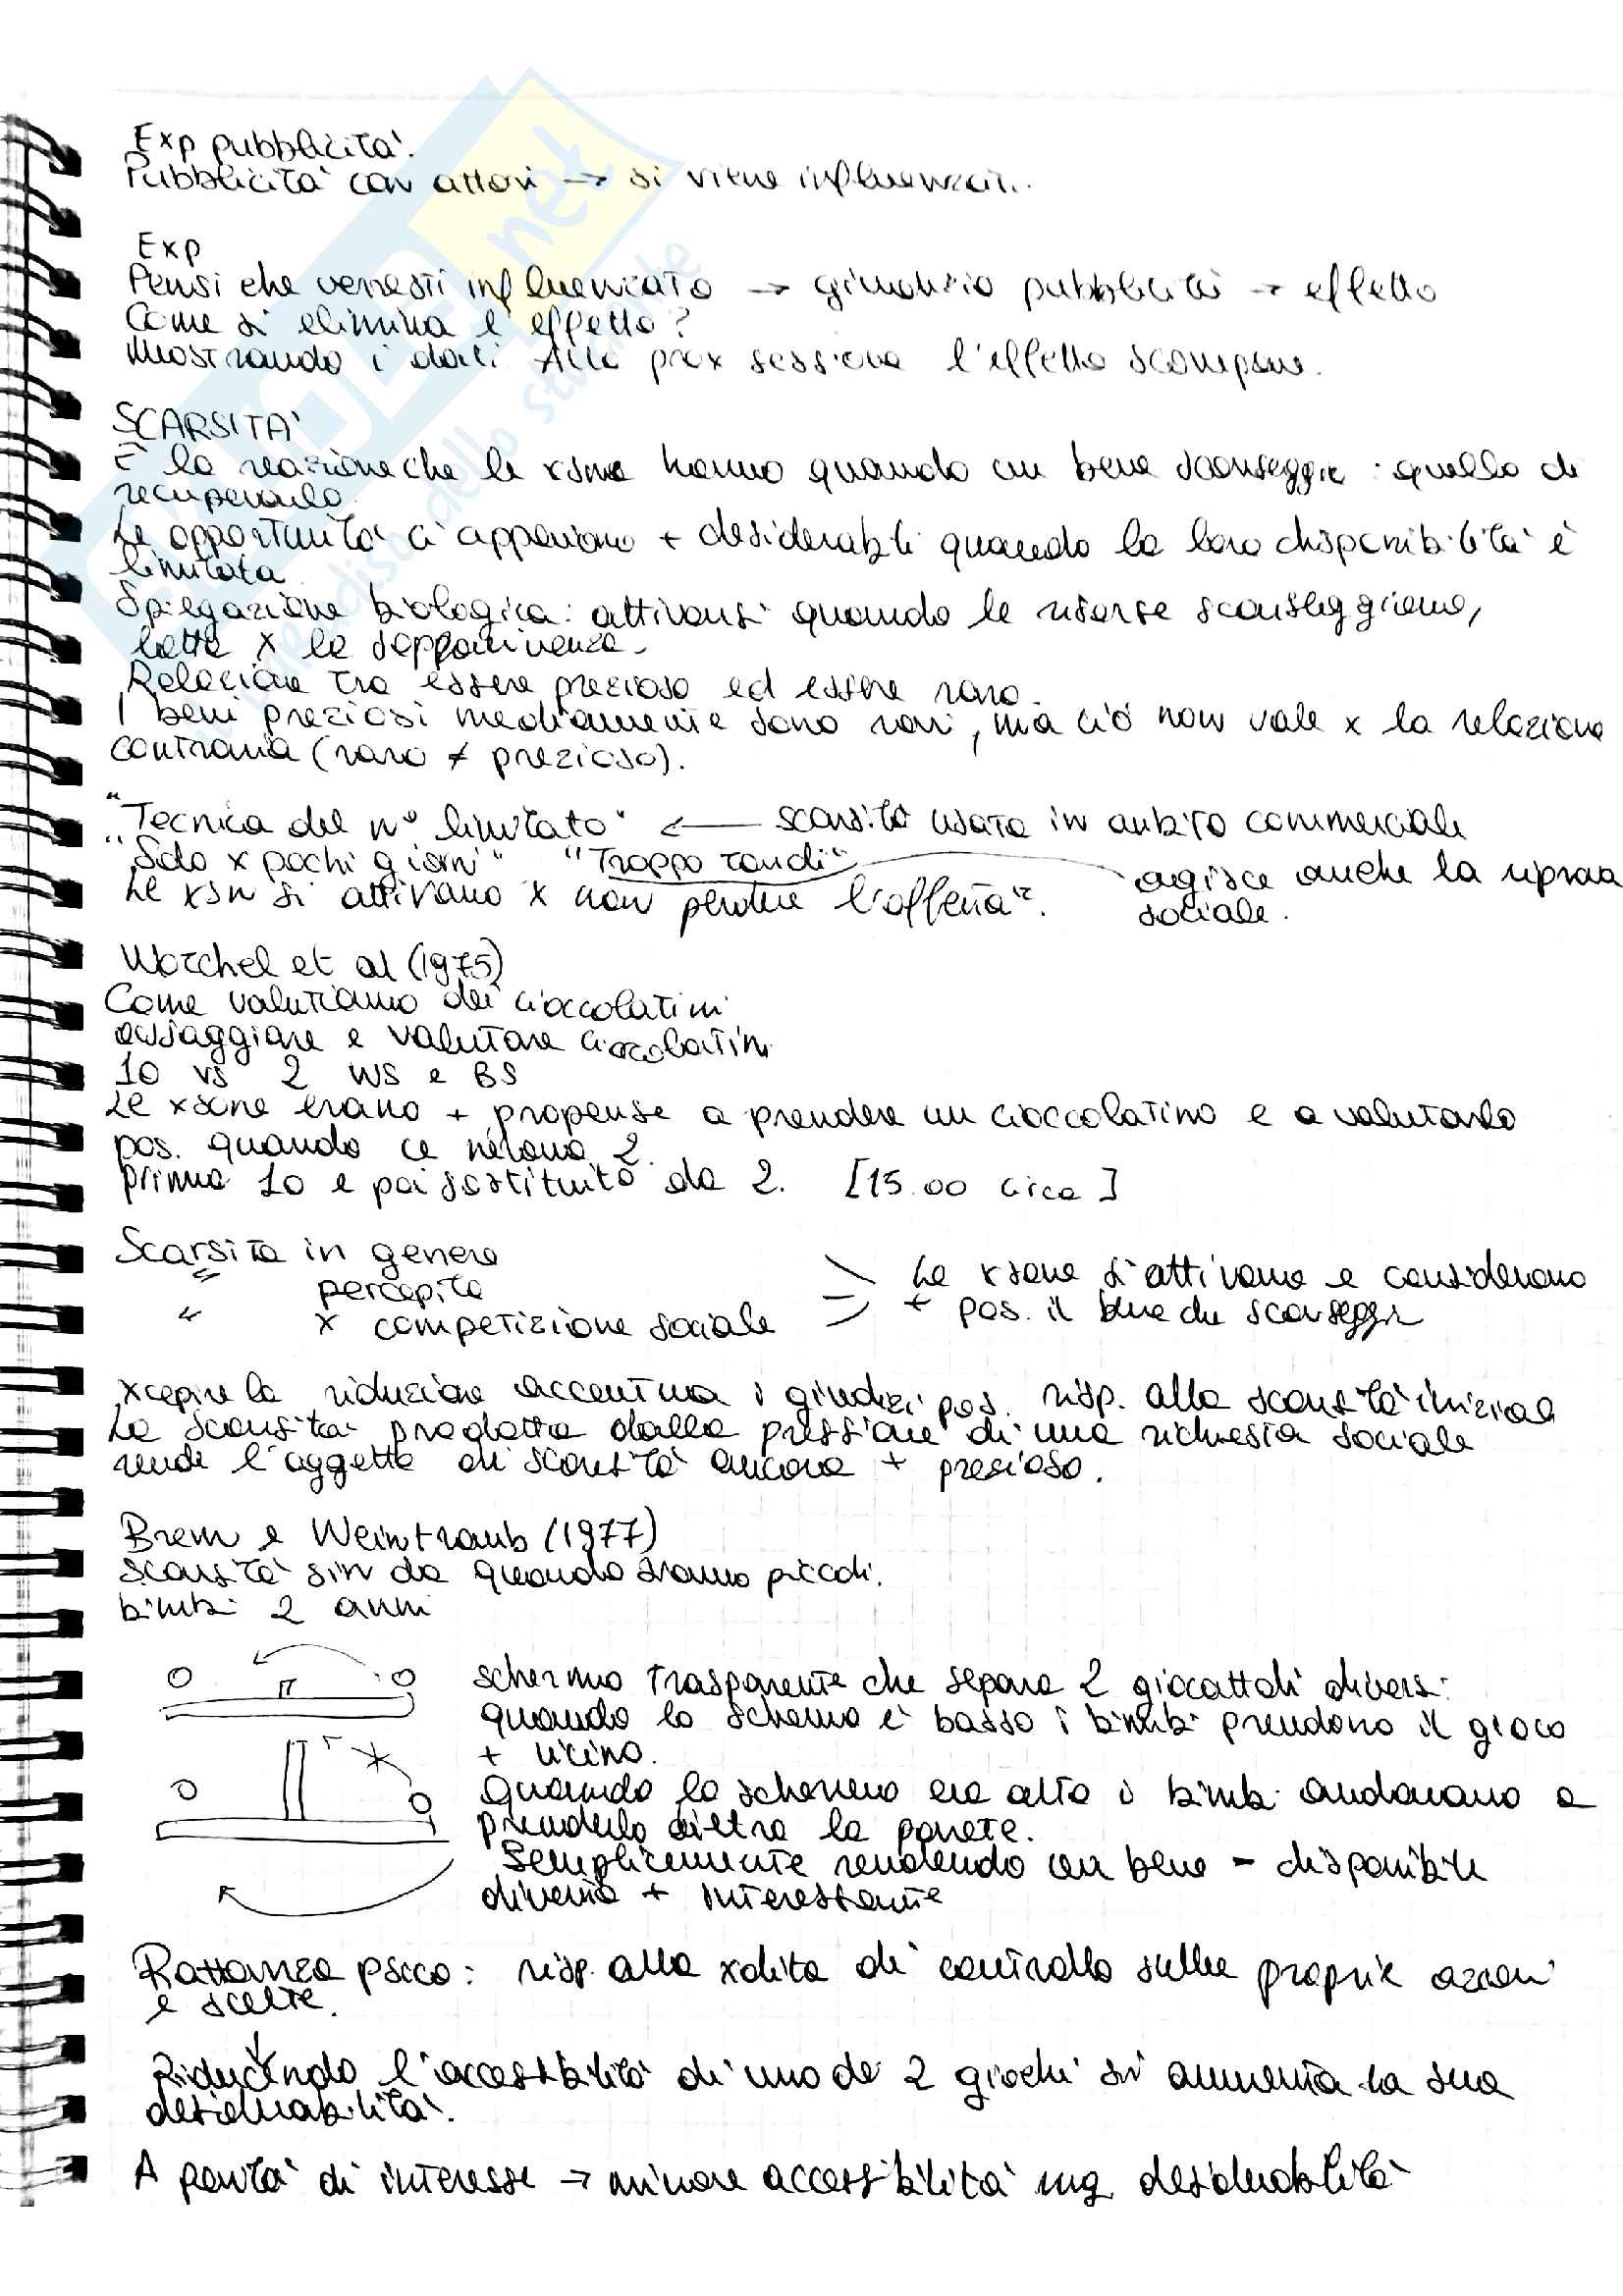 Exp pubblicità.
Pubblicità con attori → si viene influenzati.
Exp
Pensi che verresti influenzato → giudizio pubblicità → effetto
Come si elimina l'effetto?
Mostrando i dati Alla prox sessione l'effetto scompare.
SCARSITA'
È la reazione che le xsone hanno quando un bene scarseggia: quella di
recuperarlo.
Le opportunità ci appaiono + desiderabili quando la loro disponibilità è
limitata
Spiegazione biologica: attivarsi quando le risorse scarseggiano,
lotta x la sopravvivenza.
Relazione tra essere prezioso ed essere raro.
I beni preziosi mediamente sono rari, ma ciò non vale x la relazione
contraria (raro ≠ prezioso).
"Tecnica del n° limitato" ← scarsità usata in ambito commerciale
"Solo x pochi giorni" "Troppo tardi" agisce anche la riprova
Le xsn si attivano x non perdere l'offerta". sociale.
Worchel et al (1975)
Come valutiamo dei cioccolatini
assaggiare e valutare cioccolatini
10 vs 2 WS e BS
Le xsone erano + propense a prendere un cioccolatino e a valutarlo
pos. quando ce n'erano 2.
prima 10 e poi sostituito da 2. [15.00 circa]
Scarsità in genere
" percepita Le xsone si attivano e considerano
" x competizione sociale + pos. il bene che scarseggia
xcepire la riduzione accentua i giudizi pos. risp. alla scarsità iniziale
La scarsità prodotta dalla pressione di una richiesta sociale
rende l'oggetto di scarsità ancora + prezioso.
Brem e Weintraub (1977)
scarsità sin da quando siamo piccoli.
bimbi 2 anni
schermo trasparente che separa 2 giocattoli diversi
quando lo schermo è basso i bimbi prendono il gioco
+ vicino.
Quando lo schermo era alto i bimbi andavano a
prenderlo dietro la parete.
Semplicemente rendendo un bene - disponibile
diventa + interessante
Rattanza psico: risp. alla xdita di controllo sulle proprie azioni
e scelte.
Riducendo l'accessibilità di uno de 2 giochi si aumenta la sua
desiderabilità.
A parità di interesse → minore accessibilità mg desiderabilità